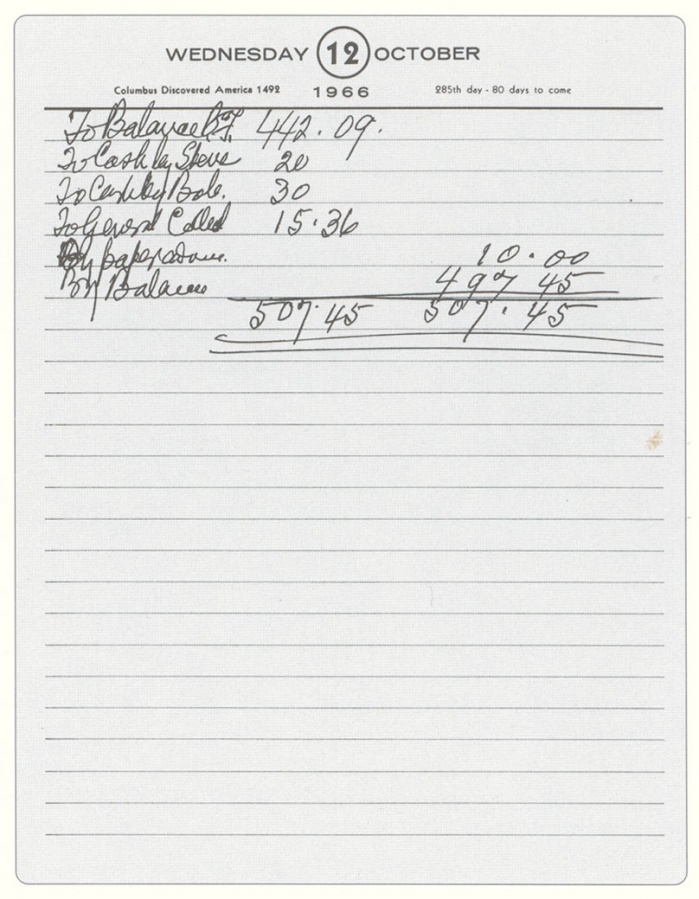 WEDNESDAY 12 OCTOBER
Columbus Discovered America 1492 1966 285th day - 80 days to come
To Balance B.F. 442.09.
To Cash by Steve 20
To Cash by Bob. 30
To General Collect 15.36
By 10.00
By Balance 497 45
507.45 507.45